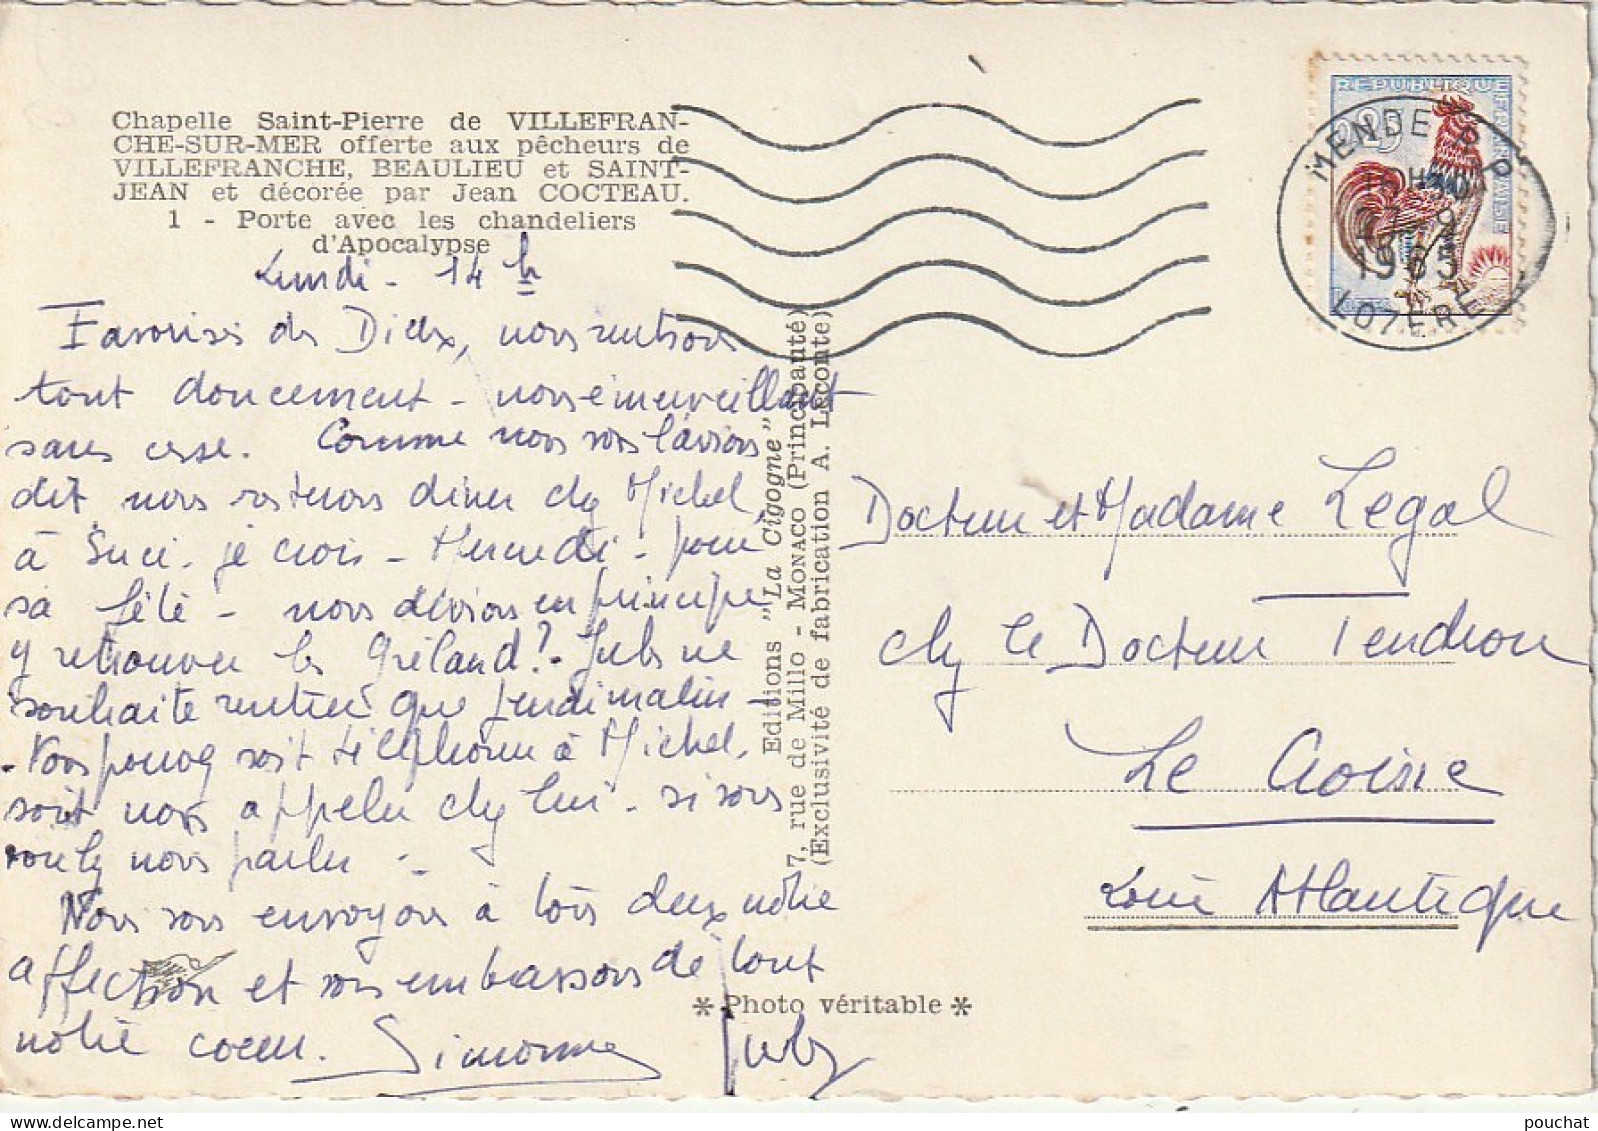 Chapelle Saint-Pierre de VILLEFRAN-
CHE-SUR-MER offerte aux pêcheurs de
VILLEFRANCHE, BEAULIEU et SAINT-
JEAN et décorée par Jean COCTEAU.
1 - Porte avec les chandeliers
d'Apocalypse
Lundi - 14 h
Favorisés des Dieux, nous rentrons
tout doucement - nous émerveillant
sans cesse. Comme nous vous l'avions
dit nous serons diner chez Michel,
à Suci - je crois - Mercredi - pour
sa fête - nous devions en principe
y retrouver les Gréland? - Jules ne
souhaite rentrer que jeudi matin -
- Vous pouvez soit téléphoner à Michel,
soit nous appeler chez lui - si vous
voulez nous parler -
Nous vous envoyons à tous deux notre
affection et vous embrassons de tout
notre coeur. Simonne Jules
Editions "La Cigogne"
7, rue de Millo - MONACO (Principauté)
(Exclusivité de fabrication A. Leconte)
* Photo véritable *
REPUBLIQUE FRANÇAISE
MENDE R.P.
1965
LOZERE
Docteur et Madame Legal
chez le Docteur Tendron
Le Croisic
Loire Atlantique
pouchat